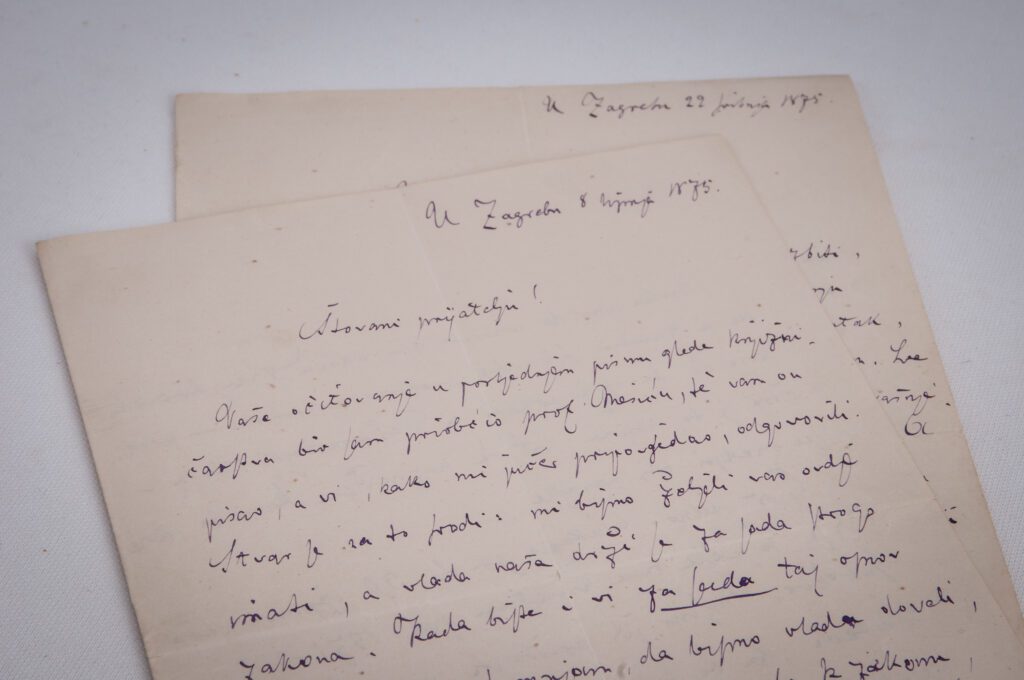 U Zagrebu 22 svibnja 1875.
zbiti,
U Zagrebu 8 rujna 1875.
Štovani prijatelju!
Vaše očitovanje u posljednjem pismu glede knjižni-
čarstva bio sam priobćio prof Mesiću, te vam on
pisao, a vi, kako mi jučer pripovjedao, odgovorili.
Stvar je za to srodi: mi bismo željeli vas ovdje
imati, a vlada naša drži se za sada strogo
zakona. Kada biste i vi za sada taj
da bismo vladu doveli,
k zakonu,